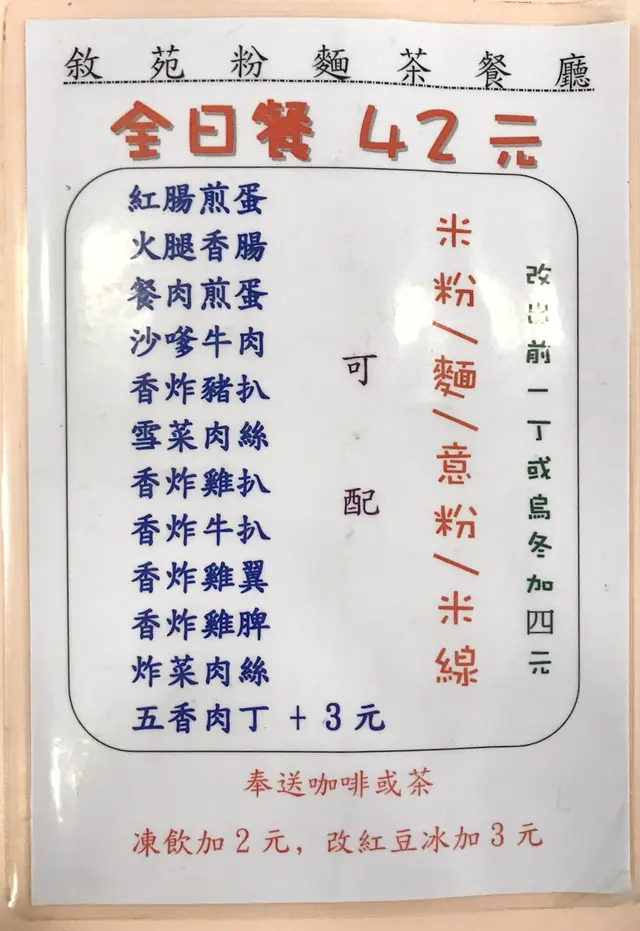 敘苑粉麵茶餐廳
全日餐 42元
紅腸煎蛋
火腿香腸
餐肉煎蛋
沙嗲牛肉
香炸豬扒
雪菜肉絲
香炸雞扒
香炸牛扒
香炸雞翼
香炸雞脾
炸菜肉絲
五香肉丁 + 3 元
可配
米粉/麵/意粉/米線
改出前一丁或烏冬加四元
奉送咖啡或茶
凍飲加 2 元, 改紅豆冰加 3 元